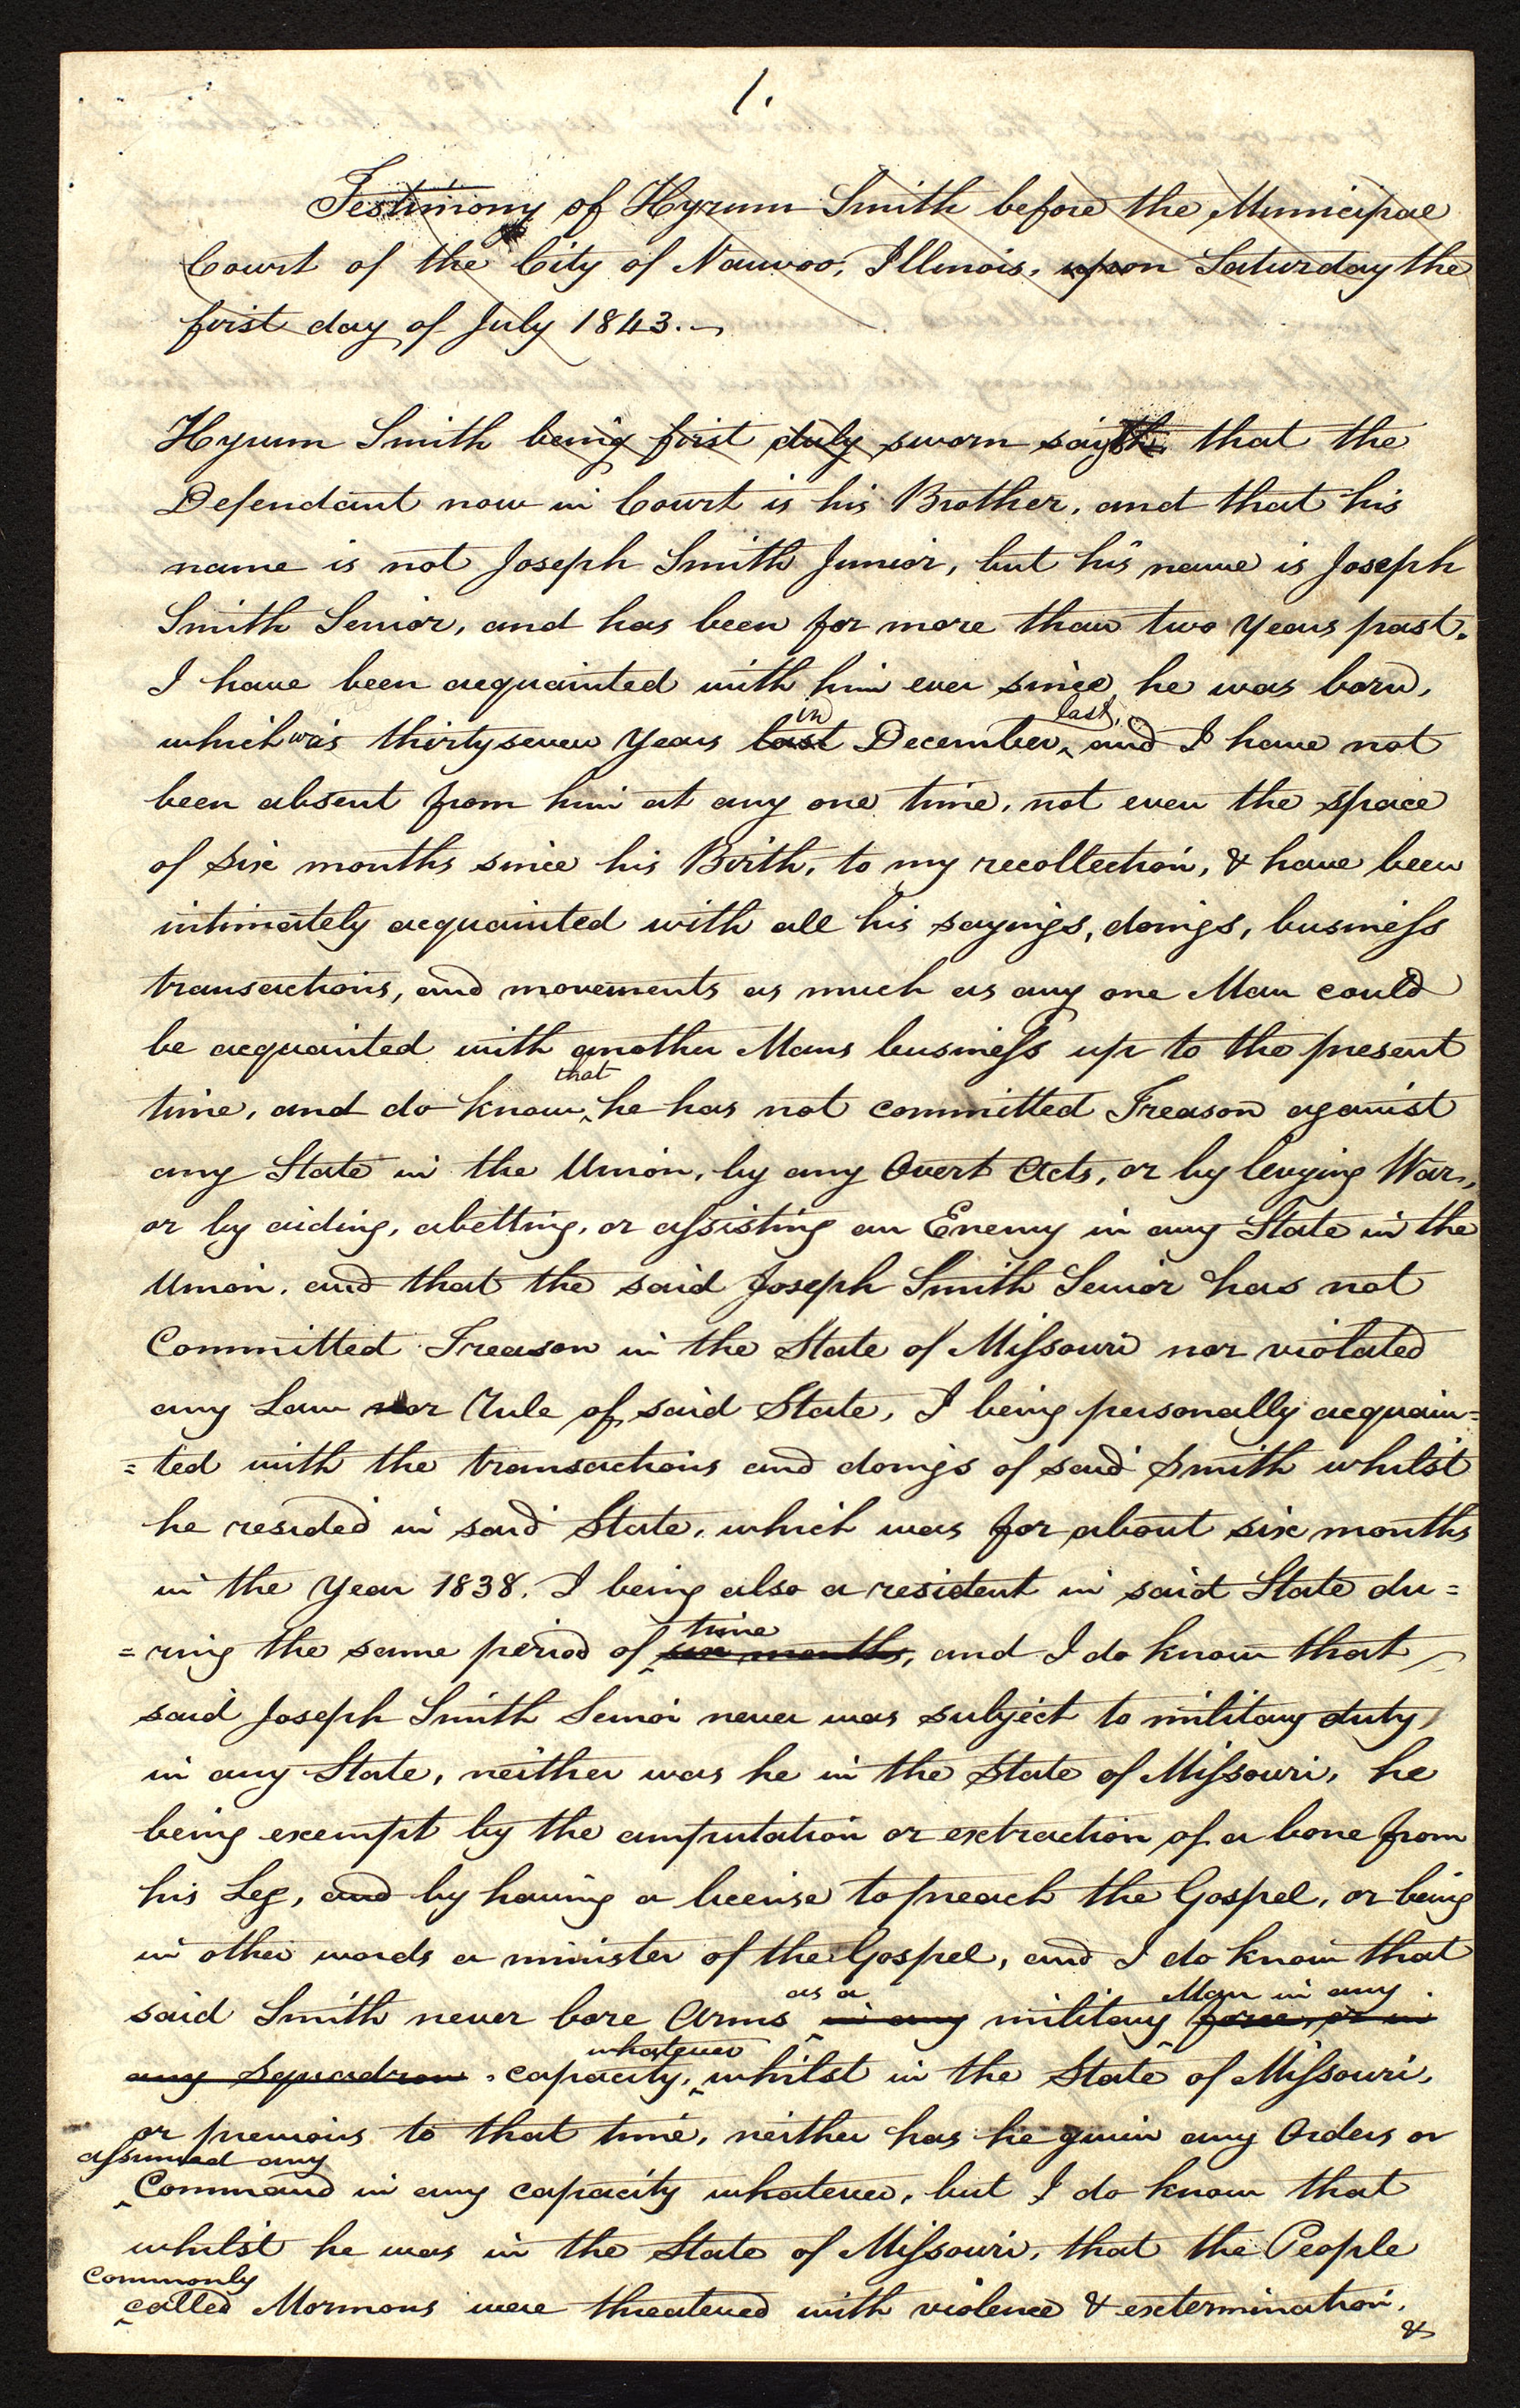 1.
Testimony of Hyrum Smith before the Municipal
Court of the City of Nauvoo, Illinois, upon Saturday the
first day of July 1843.
Hyrum Smith being first duly sworn sayth that the
Defendant now in Court is his Brother, and that his
name is not Joseph Smith Junior, but his name is Joseph
Smith Senior, and has been for more than two Years past.
I have been acquainted with him ever since he was born,
in last,
which was thirtyseven Years last December, and I have not
been absent from him at any one time, not even the space
of six months since his Birth, to my recollection, & have been
intimately acquainted with all his sayings, doings, business
transactions, and movements as much as any one Man could
be acquainted with another Mans business up to the present
that
time, and do know he has not committed Treason against
any State in the Union, by any Overt Acts, or by levying War,
or by aiding, abetting, or assisting an Enemy in any State in the
Union, and that the said Joseph Smith Senior has not
Committed Treason in the State of Missouri nor violated
any Law nor Rule of said State, I being personally acquain=
=ted with the transactions and doings of said Smith whilst
he resided in said State, which was for about six months
in the Year 1838. I being also a resident in said State du=
time
=ring the same period of six months, and I do know that
said Joseph Smith Senior never was subject to military duty
in any State, neither was he in the State of Missouri, he
being exempt by the amputation or extraction of a bone from
his Leg, and by having a license to preach the Gospel, or being
in other words a minister of the Gospel, and I do know that
as a Man in any
said Smith never bore Arms in any military force, or in
whatever
any Squadron capacity, whilst in the State of Missouri,
or previous to that time, neither has he given any Orders or
assumed any
Command in any capacity whatever, but I do know that
whilst he was in the State of Missouri, that the People
commonly
called Mormons were threatened with violence & extermination,
&